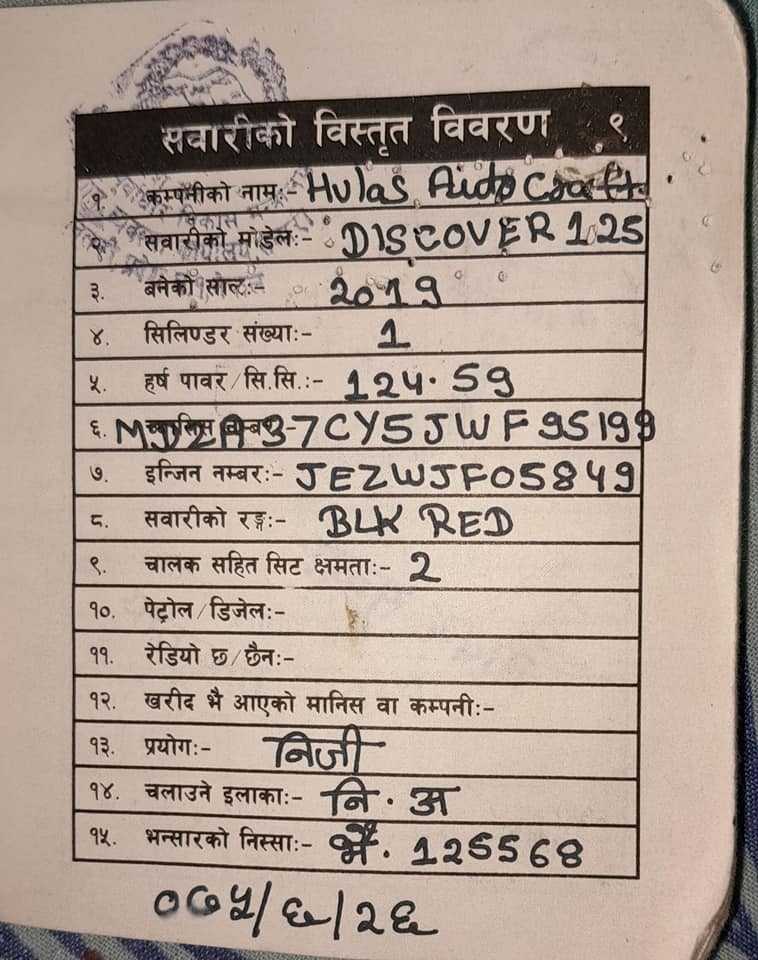 सवारीको विस्तृत विवरण ९
१. कम्पनीको नामः- Hulas Auto Craft
२. सवारीको मोडेलः- DISCOVER 125
३. बनेको सालः- 2019
४. सिलिण्डर संख्याः- 1
५. हर्ष पावर/सि.सि.ः- 124.59
६. MD2A37CY5JWF95199
७. इन्जिन नम्बरः- JEZWJF05849
८. सवारीको रङ्गः- BLK RED
९. चालक सहित सिट क्षमताः- 2
१०. पेट्रोल/डिजेलः-
११. रेडियो छ/छैनः-
१२. खरीद भै आएको मानिस वा कम्पनीः-
१३. प्रयोगः- निजी
१४. चलाउने इलाकाः- नि.अ
१५. भन्सारको निस्साः- भै. 125568
०७५/६/२६